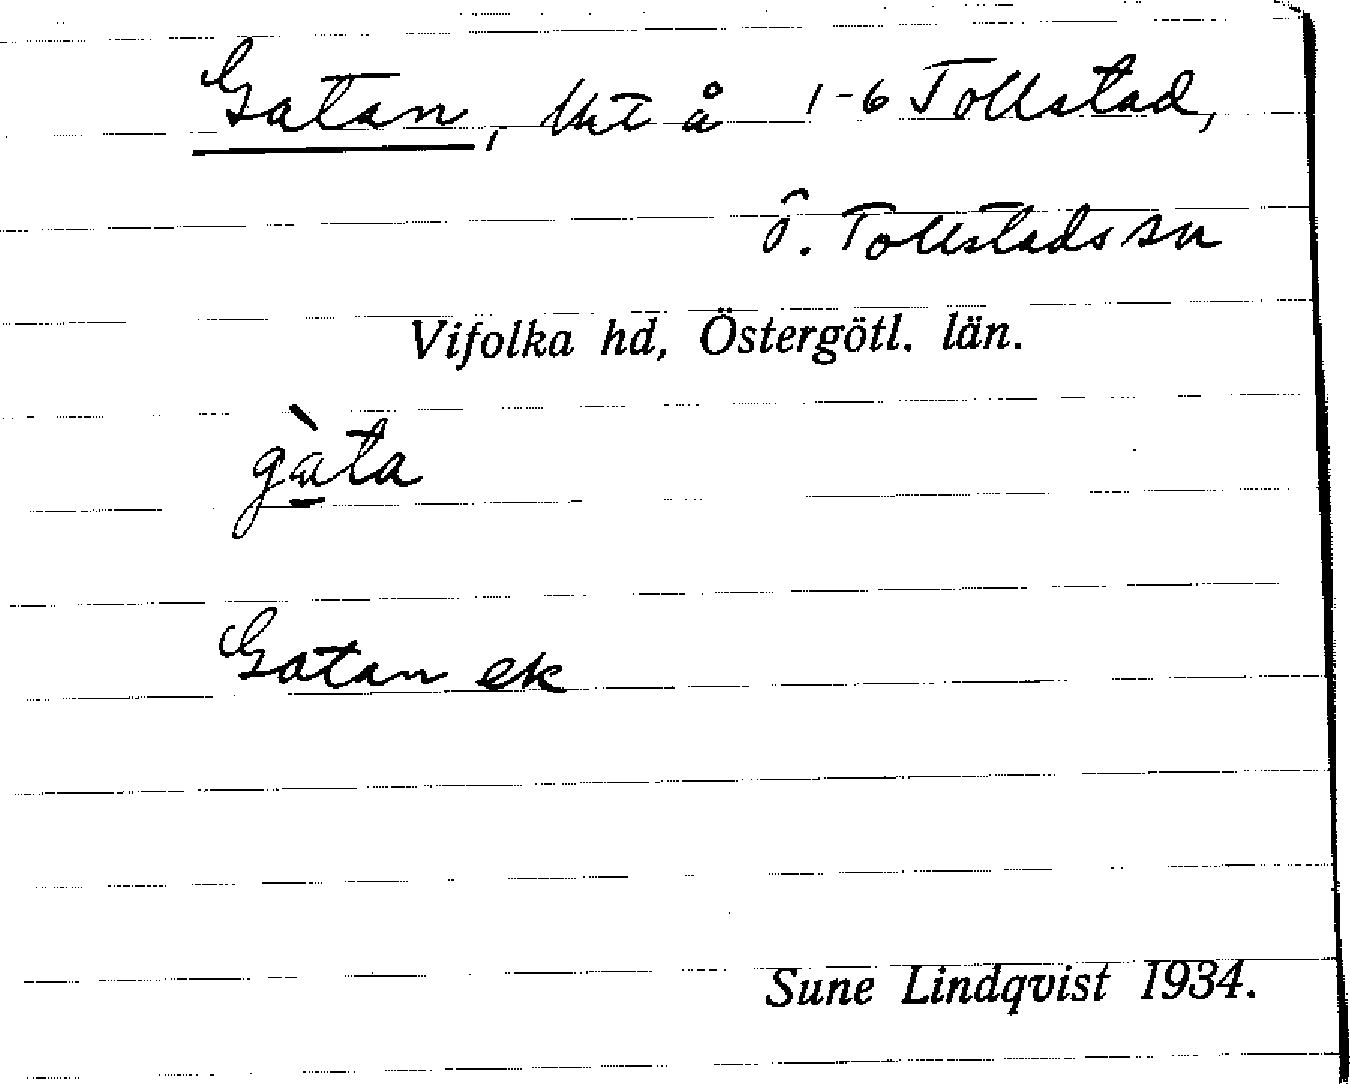 Gatan, lht å 1-6 Tollstad,
Ö. Tollstads sn
Vifolka hd, Östergötl. län.
gàta
Gatan ek
Sune Lindqvist 1934.